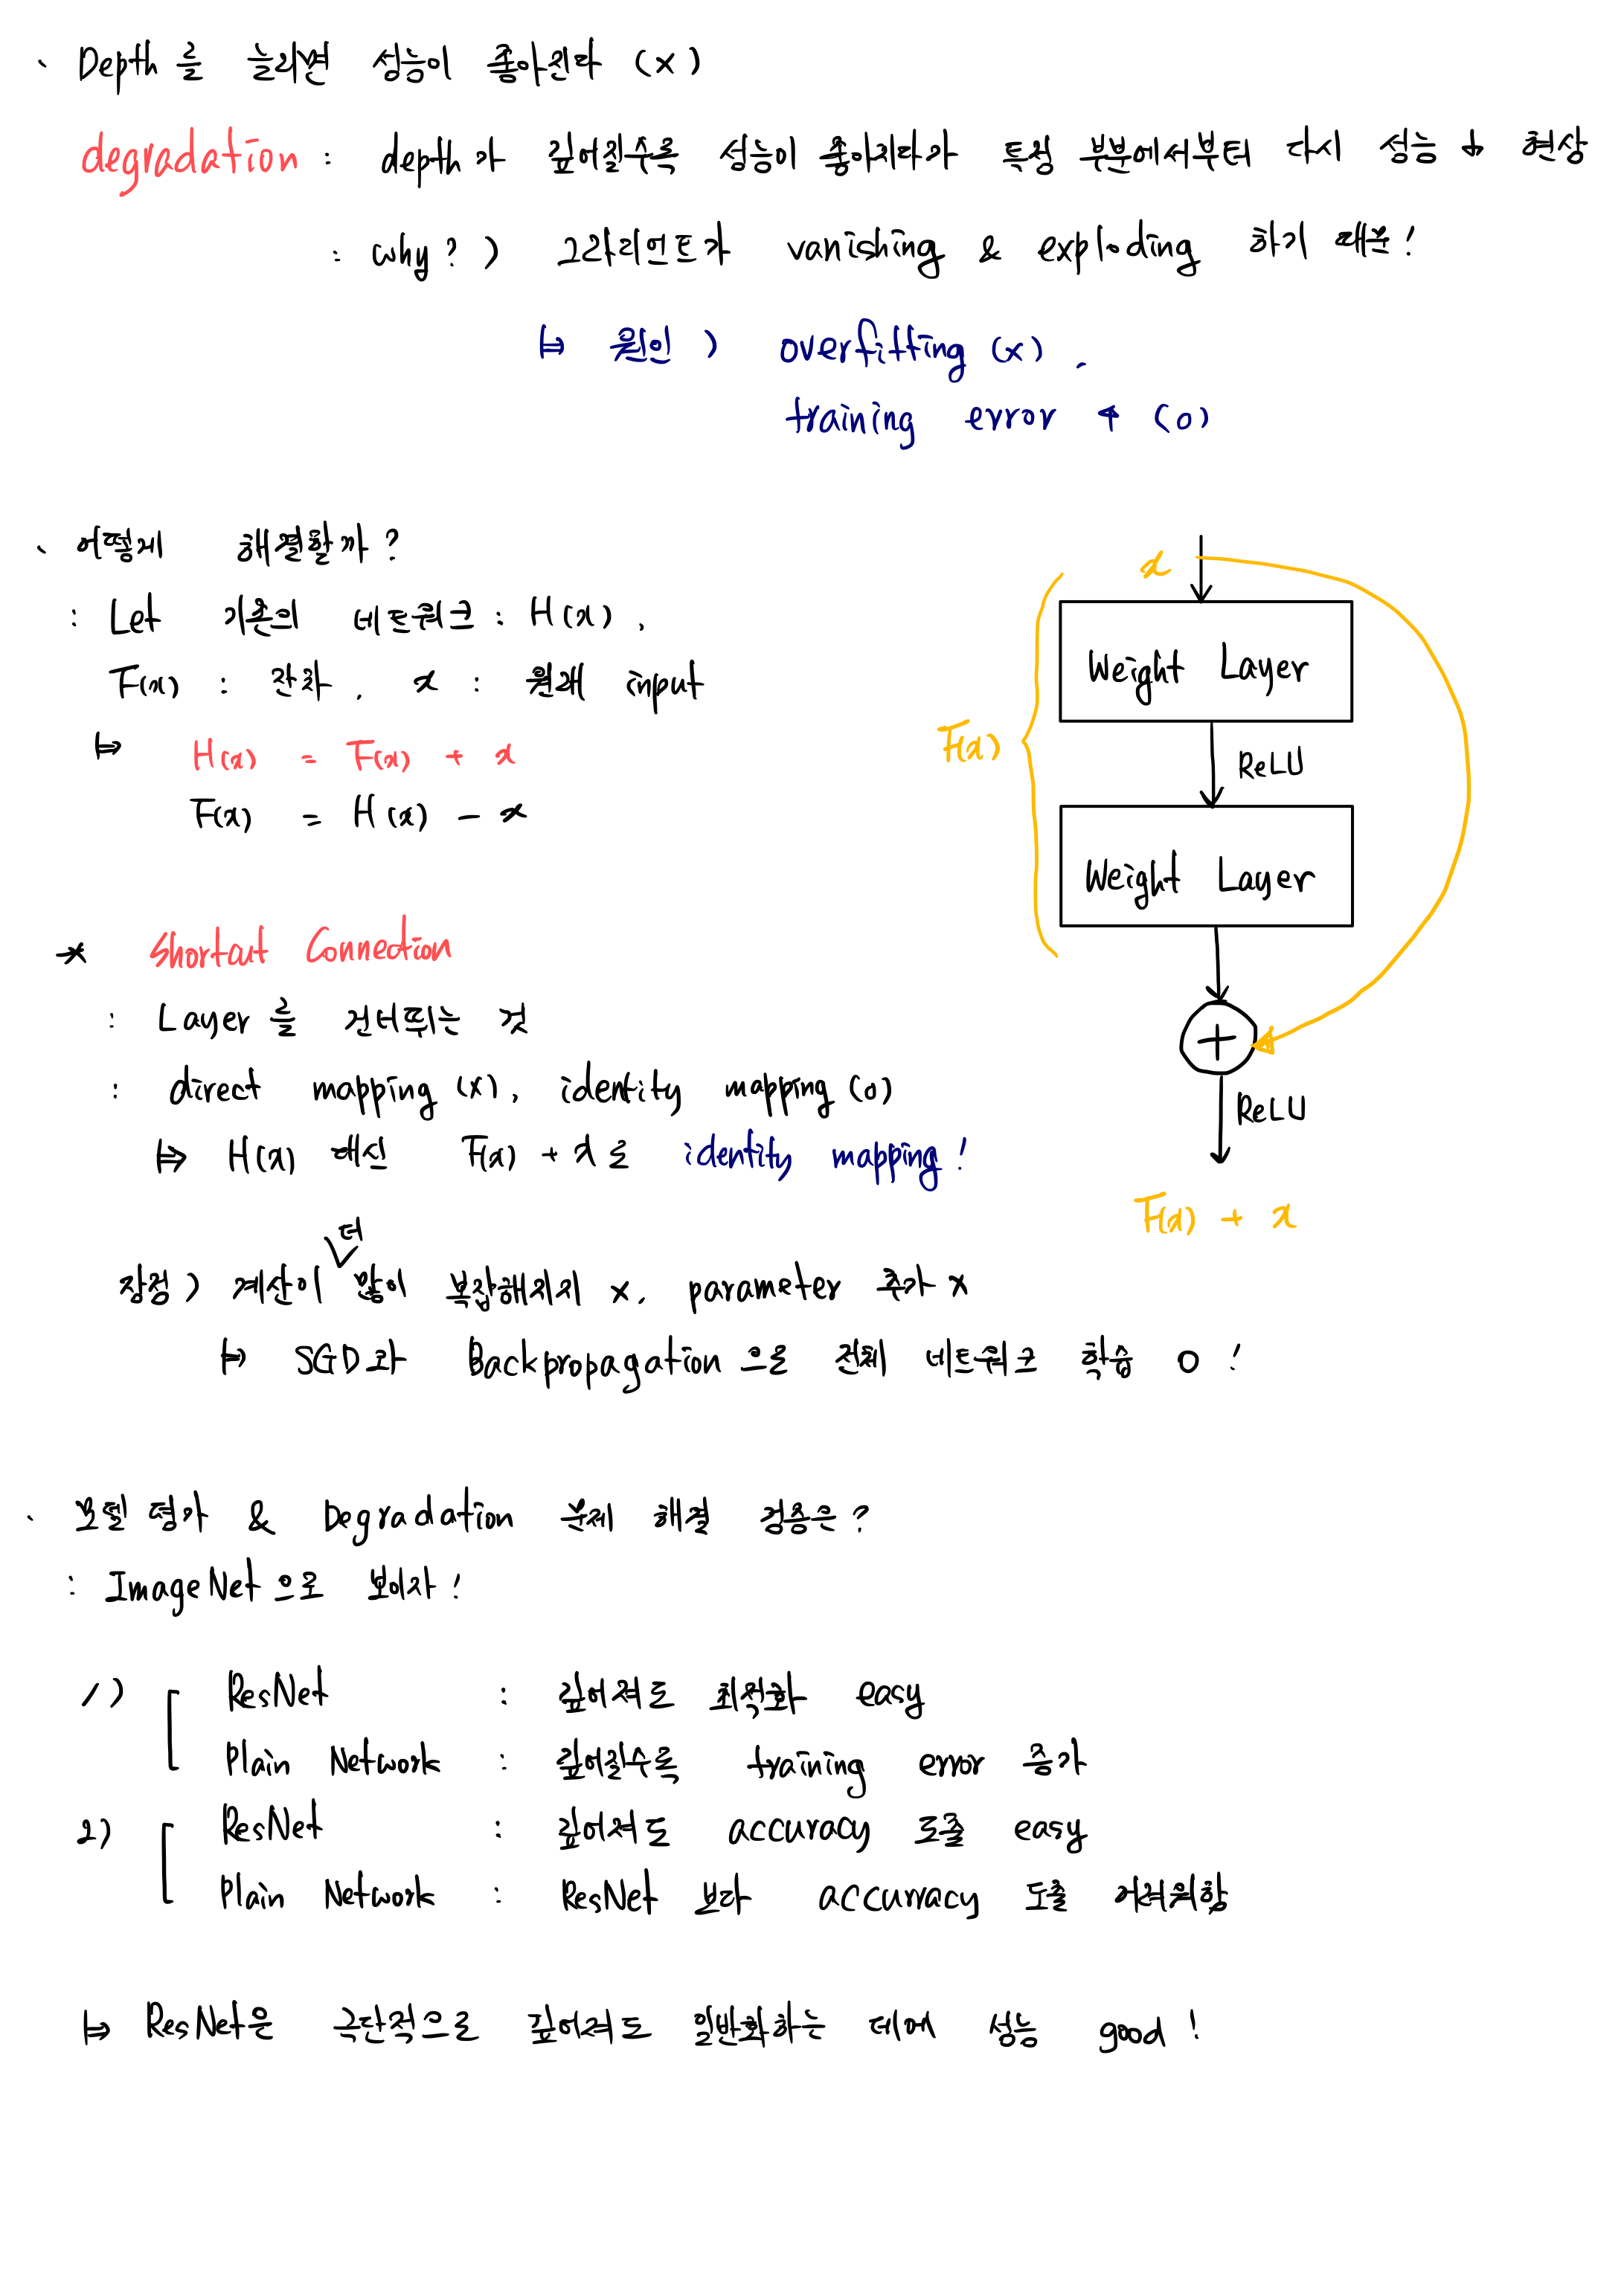 ` Depth를 늘리면 성능이 좋아진다 (x)
degradation : depth가 깊어질수록 성능이 좋아지다가 특정 부분에서부터 다시 성능 ↓ 현상
: why?) 그라디언트가 vanishing & exploding 하기 때문!
↦ 원인) overfitting (x).
training error ↑ (o)
` 어떻게 해결할까?
: Let 기존의 네트워크 : H(x),
F(x) : 잔차, x : 원래 input
↦ H(x) = F(x) + x
F(x) = H(x) - x
x
Weight Layer
F(x)
ReLU
Weight Layer
+
ReLU
F(x) + x
* Shortcut Connection
: Layer를 건너뛰는 것
: direct mapping (x), identity mapping (o)
⇒ H(x) 대신 F(x) + x로 identity mapping!
장점) 계산이 더 많이 복잡해지지 x, parameter 추가 x
↦ SGD와 Backpropagation으로 전체 네트워크 학습 o!
` 모델 평가 & Degradation 문제 해결 검증은?
: ImageNet으로 보이자!
1) ResNet : 깊어져도 최적화 easy
Plain Network : 깊어질수록 training error 증가
2) ResNet : 깊어져도 accuracy 도출 easy
Plain Network : ResNet 보다 accurracy 도출 어려워함
↦ ResNet은 극단적으로 깊어져도 일반화하는 데에 성능 good!